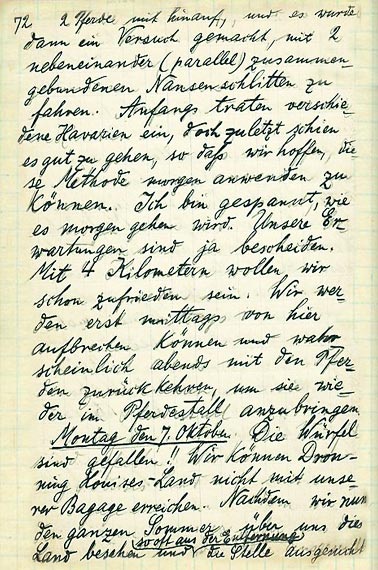 72 2 Pferde mit hinauf, und es wurde
dann ein Versuch gemacht, mit 2
nebeneinander (parallel) zusammen-
gebundenen Nansenschlitten zu
fahren. Anfangs traten verschie-
dene Havarien ein, doch zuletzt schien
es gut zu gehen, so daß wir hoffen, die-
se Methode morgen anwenden zu
können. Ich bin gespannt, wie
es morgen gehen wird. Unsere Er-
wartungen sind ja bescheiden.
Mit 4 Kilometern wollen wir
schon zufrieden sein. Wir wer-
den erst mittags von hier
aufbrechen können und wahr-
scheinlich abends mit den Pfer-
den zurückkehren, um sie wie-
der im Pferdestall anzubringen.
Montag den 7. Oktober. Die Würfel
sind gefallen!! Wir können Dron-
ning Louises-Land nicht mit unse-
rer Bagage erreichen. Nachdem wir nun
den ganzen Sommer über uns die
so oft aus der Entfernung
Land besehen und die Stelle ausgesucht